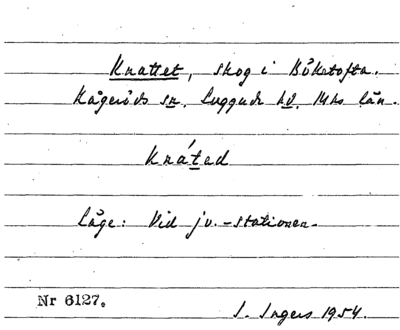 Knattet, skog i Böketofta.
Kågeröds sn, Luggude hd, Mhs län.
Knáted
Läge: Vid jv.-stationen.
Nr 6127.
I. Ingers 1954.